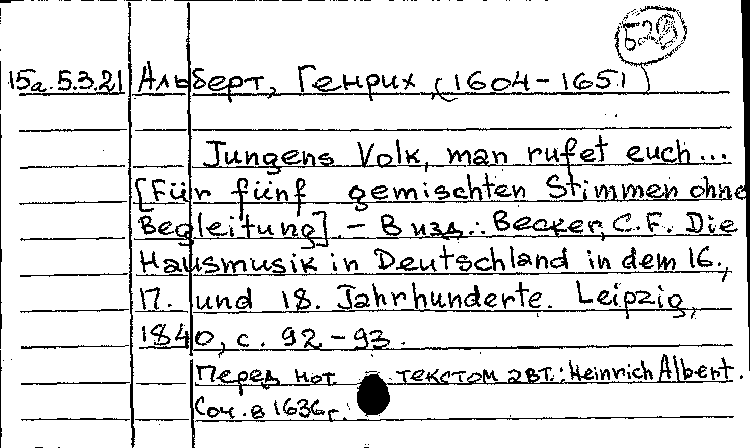 528
15а.5.3.21 Альберт, Генрих (1604-1651)
Jungens Volk, man rufet euch...
[Für fünf gemischten Stimmen ohne
Begleitung]. - В изд.: Becker, C.F. Die
Hausmusik in Deutschland in dem 16.,
17. und 18. Jahrhunderte. Leipzig,
1840, с. 92-93.
Перед нот. текстом авт.: Heinrich Albert.
Соч. в 1636г.